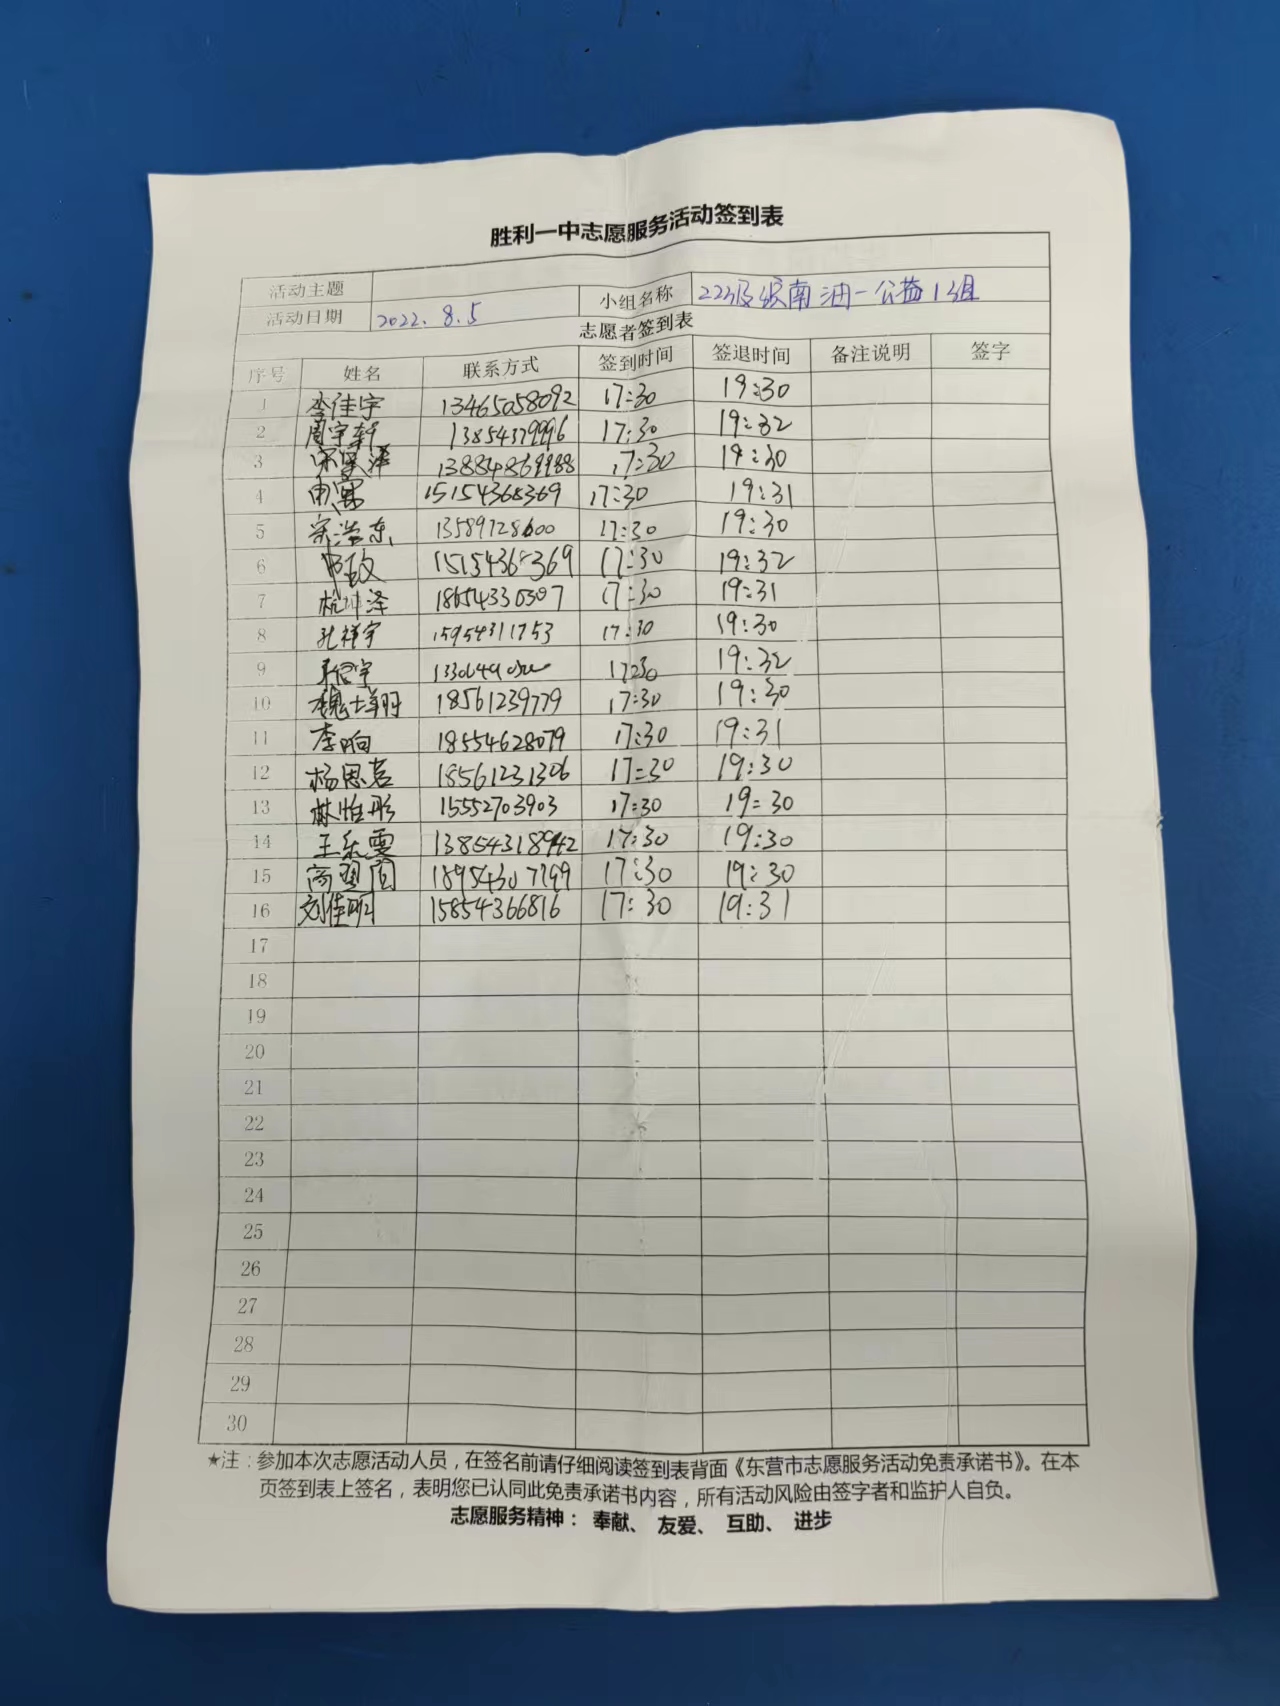 胜利一中志愿服务活动签到表
活动主题
活动日期 2022.8.5 小组名称 22级 南油一公益1组
志愿者签到表
序号 姓名 联系方式 签到时间 签退时间 备注说明 签字
1 李佳宇 13465058092 17:30 19:30
2 周宇轩 13854379996 17:30 19:32
3 泽 13884869988 17:30 19:30
4 15154368369 17:30 19:31
5 宋浩东 13589728600 17:30 19:30
6 15154368369 17:30 19:32
7 杭坤泽 18654330307 17:30 19:31
8 孔祥宇 15954311753 17:30 19:30
9 17:30 19:32
10 魏士翔 18561239779 17:30 19:30
11 李响 18554628079 17:30 19:31
12 杨恩茗 18561231306 17:30 19:30
13 林惟彤 15552703903 17:30 19:30
14 王乐雯 13854318942 17:30 19:30
15 18954307799 17:30 19:30
16 刘佳明 15854366816 17:30 19:31
17
18
19
20
21
22
23
24
25
26
27
28
29
30
★注：参加本次志愿活动人员，在签名前请仔细阅读签到表背面《东营市志愿服务活动免责承诺书》。在本
页签到表上签名，表明您已认同此免责承诺书内容，所有活动风险由签字者和监护人自负。
志愿服务精神： 奉献、 友爱、 互助、 进步